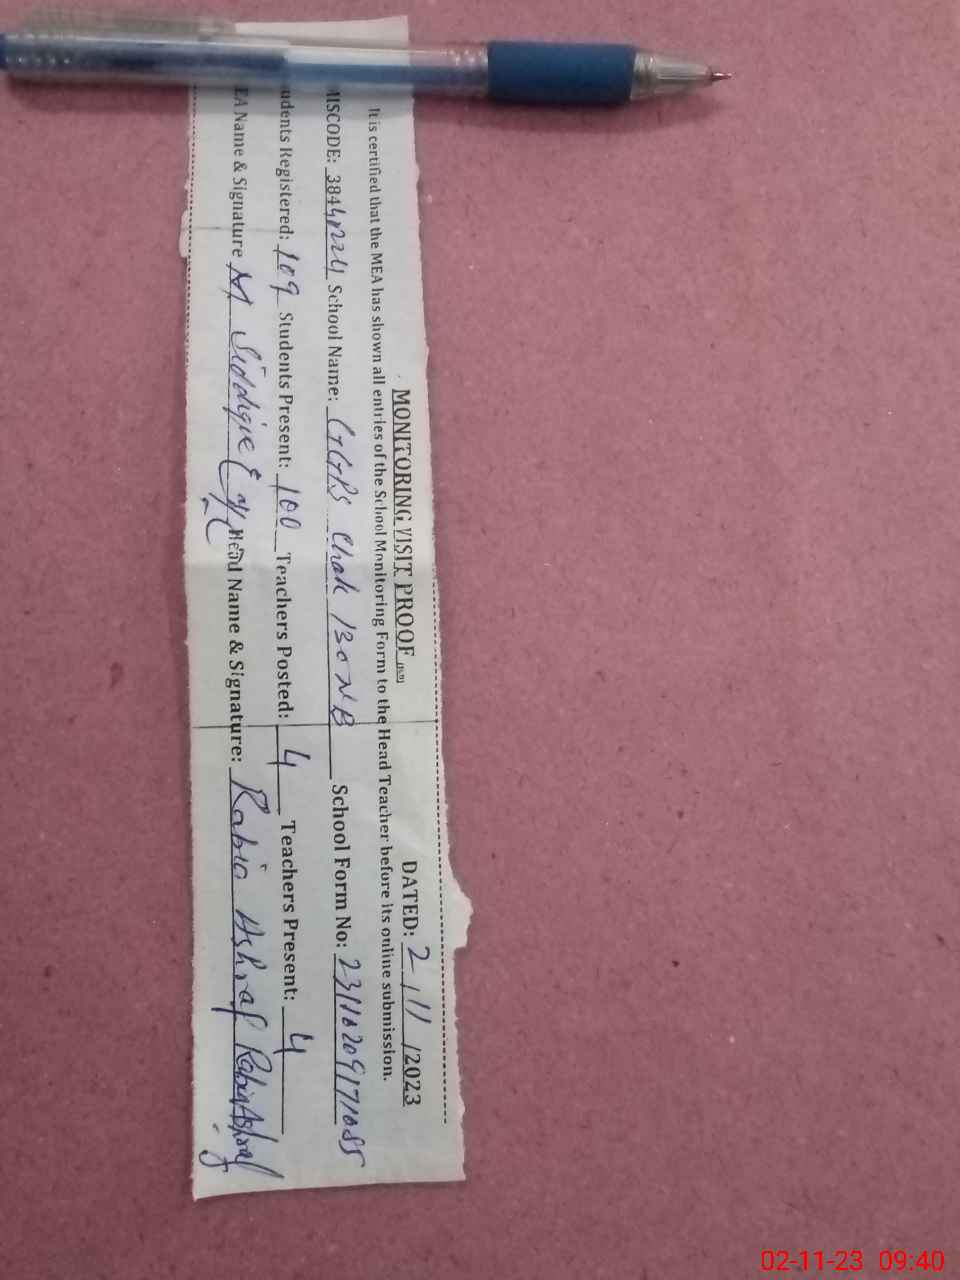 MONITORING VISIT PROOF DATED: 2/11/2023
It is certified that the MEA has shown all entries of the School Monitoring Form to the Head Teacher before its online submission.
MISCODE: School Name: GGPS Chak 130 NB School Form No:
udents Registered: 109 Students Present: 100 Teachers Posted: 4 Teachers Present: 4
EA Name & Signature M Siddique Head Name & Signature: Rabia Ashraf Rabia Ashraf
02-11-23 09:40